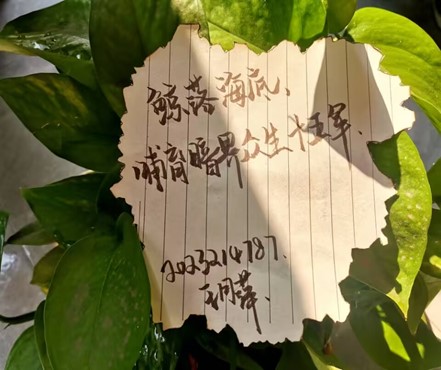 鲸落海底、
哺育暗界众生十五年.
2023214787.